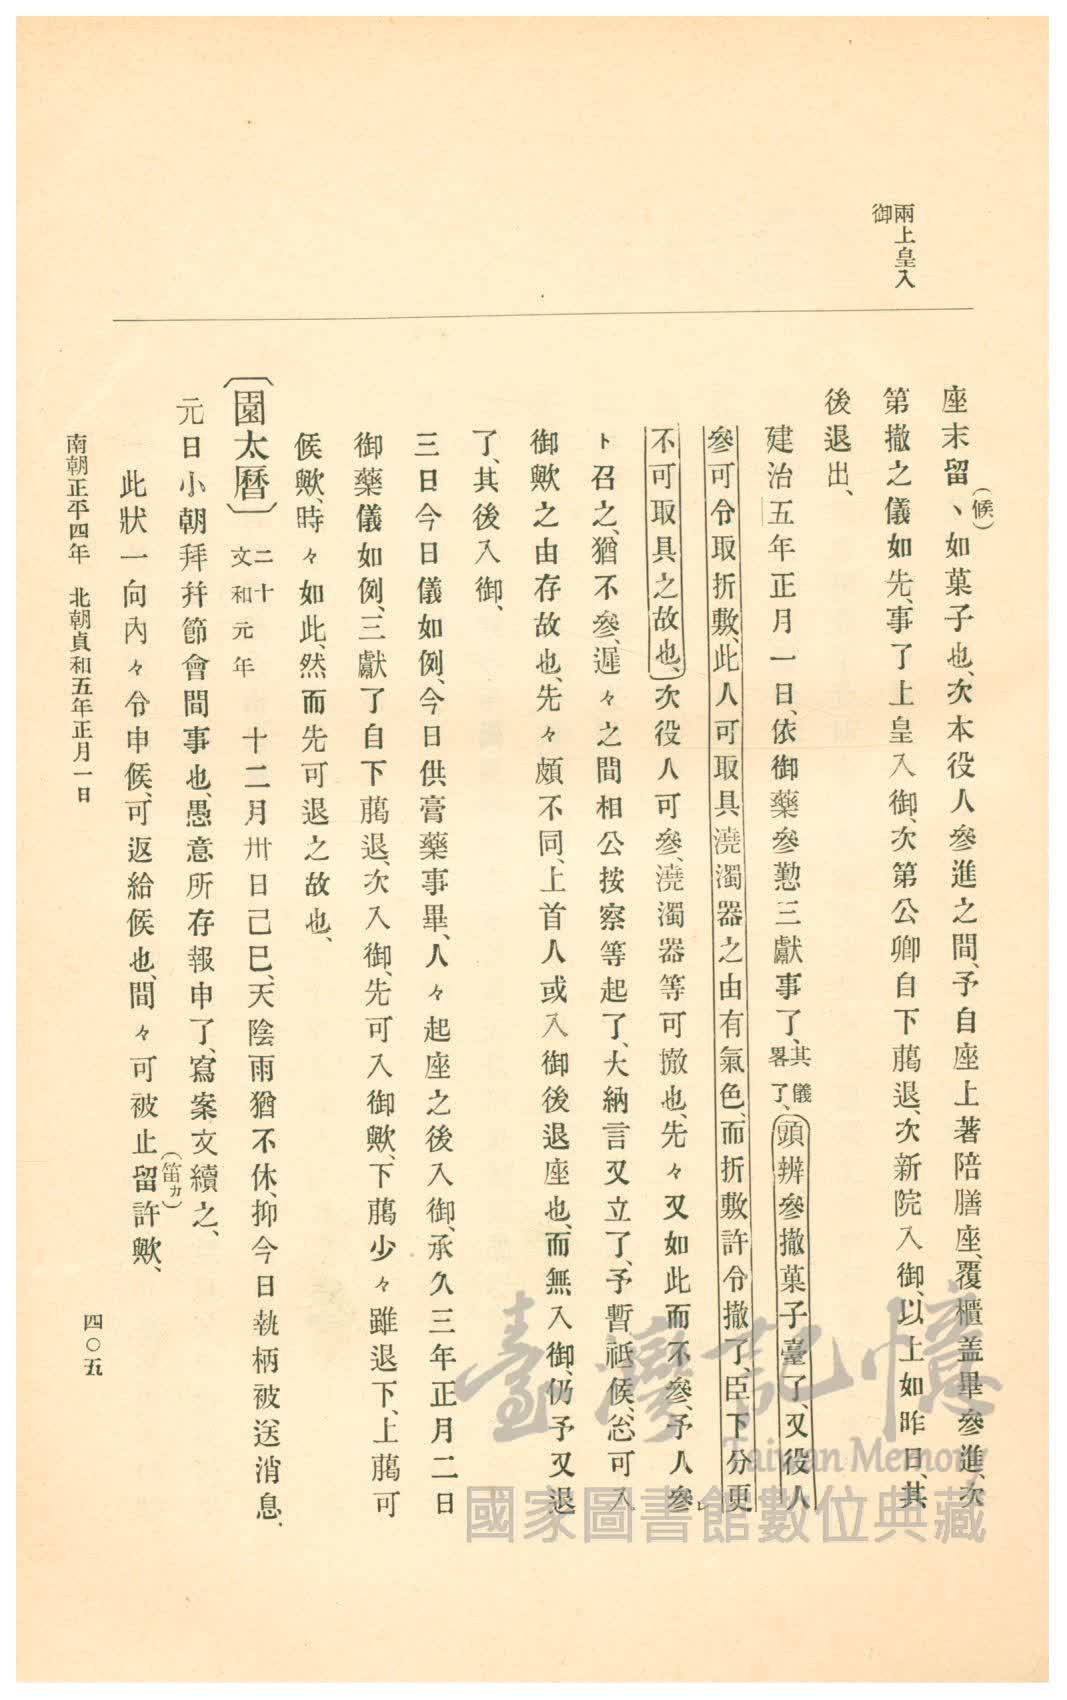 兩上皇入
御
座末留(候)、如菓子也、次本役人參進之間、予自座上著陪膳座、覆櫃盖畢參進、次
第撤之儀如先、事了上皇入御、次第公卿自下﨟退、次新院入御、以上如昨日、其
後退出、
建治五年正月一日、依御藥參懃三獻事了、其儀畧了、頭辨參撤菓子臺了、又役人
參可令取折敷、此人可取具澆濁器之由有氣色、而折敷許令撤了、臣下分更
不可取具之故也、次役人可參、澆濁器等可撤也、先々又如此而不參、予人參
ト召之、猶不參、遲々之間相公按察等起了、大納言又立了、予暫祗候、忩可入
御歟之由存故也、先々頗不同、上首人或入御後退座也、而無入御、仍予又退
了、其後入御、
三日今日儀如例、今日供膏藥事畢、人々起座之後入御、承久三年正月二日
御藥儀如例、三獻了自下﨟退、次入御、先可入御歟、下﨟少々雖退下、上﨟可
候歟、時々如此、然而先可退之故也、
〔園太曆〕二十文和元年 十二月卅日己巳、天陰雨猶不休、抑今日執柄被送消息、
元日小朝拜幷節會間事也、愚意所存報申了、寫案文續之、
此狀一向內々令申候、可返給候也、間々可被止留(笛カ)許歟、
南朝正平四年 北朝貞和五年正月一日
四〇五
臺灣記憶
Taiwan Memory
國家圖書館數位典藏